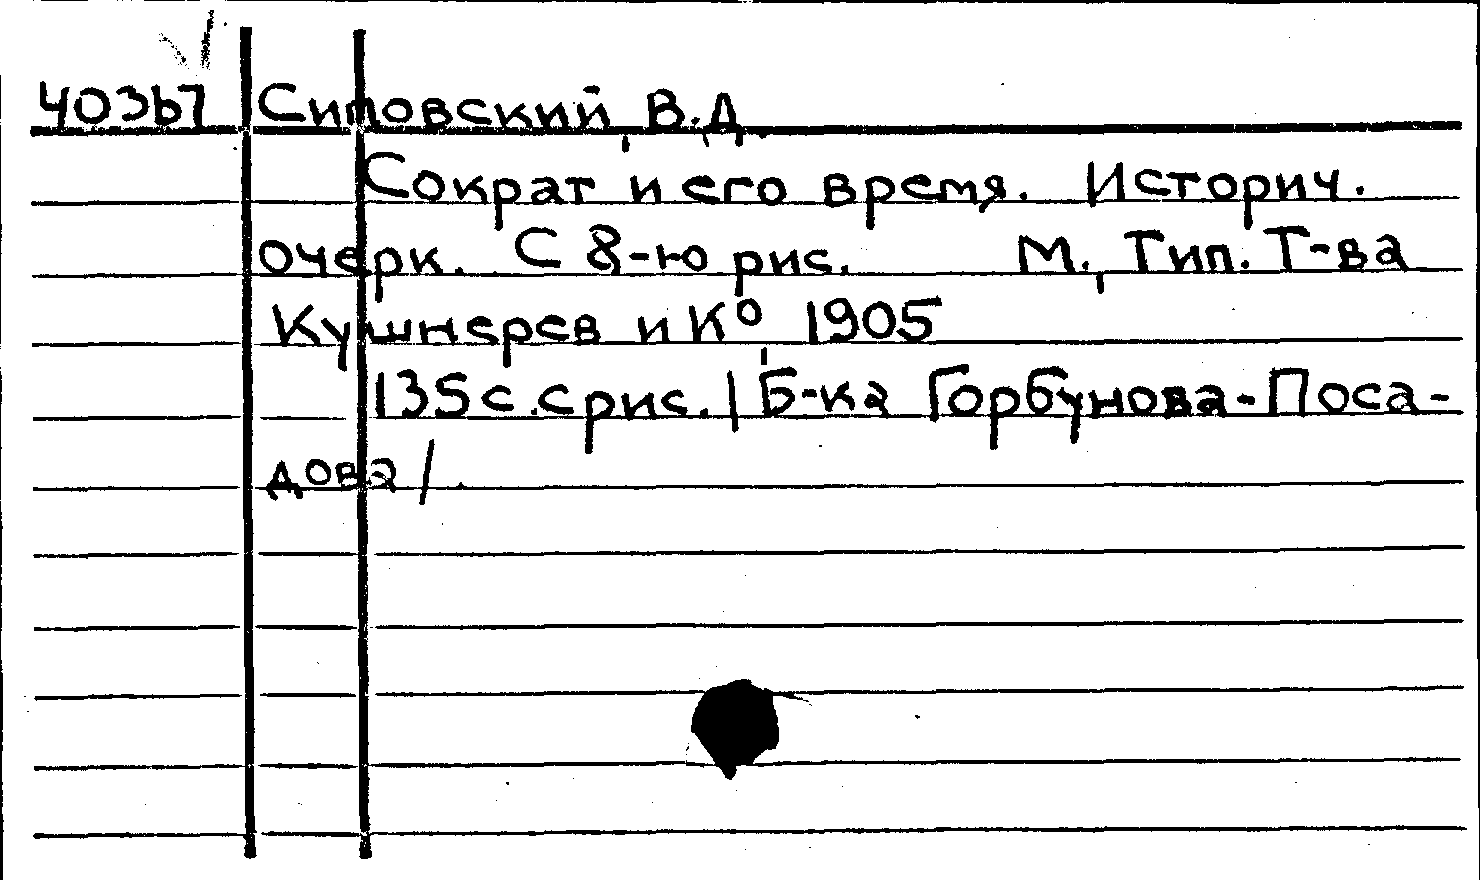 40367 Сиповский, В.Д.
Сократ и его время. Историч.
очерк. С 8-ю рис. М., Тип. Т-ва
Кушнерев и К° 1905
135 с. с рис. / Б-ка Горбунова-Поса-
дова /.